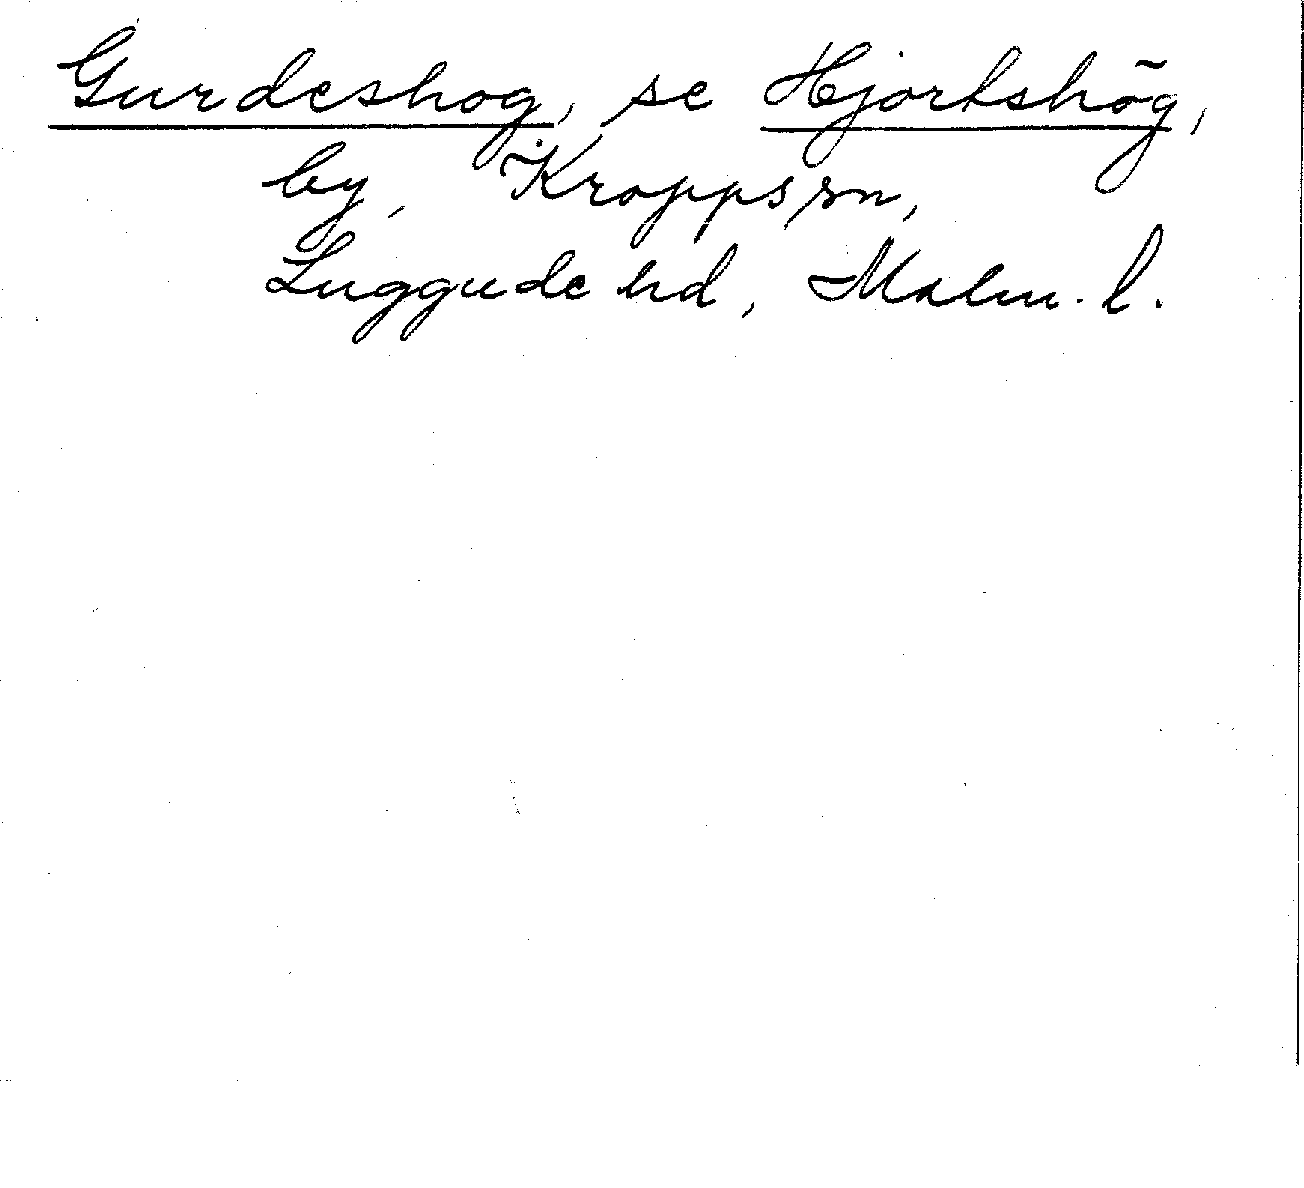 Gurdeshog, se Hjortshög,
by, Kropps sn,
Luggude hd, Malm. l.